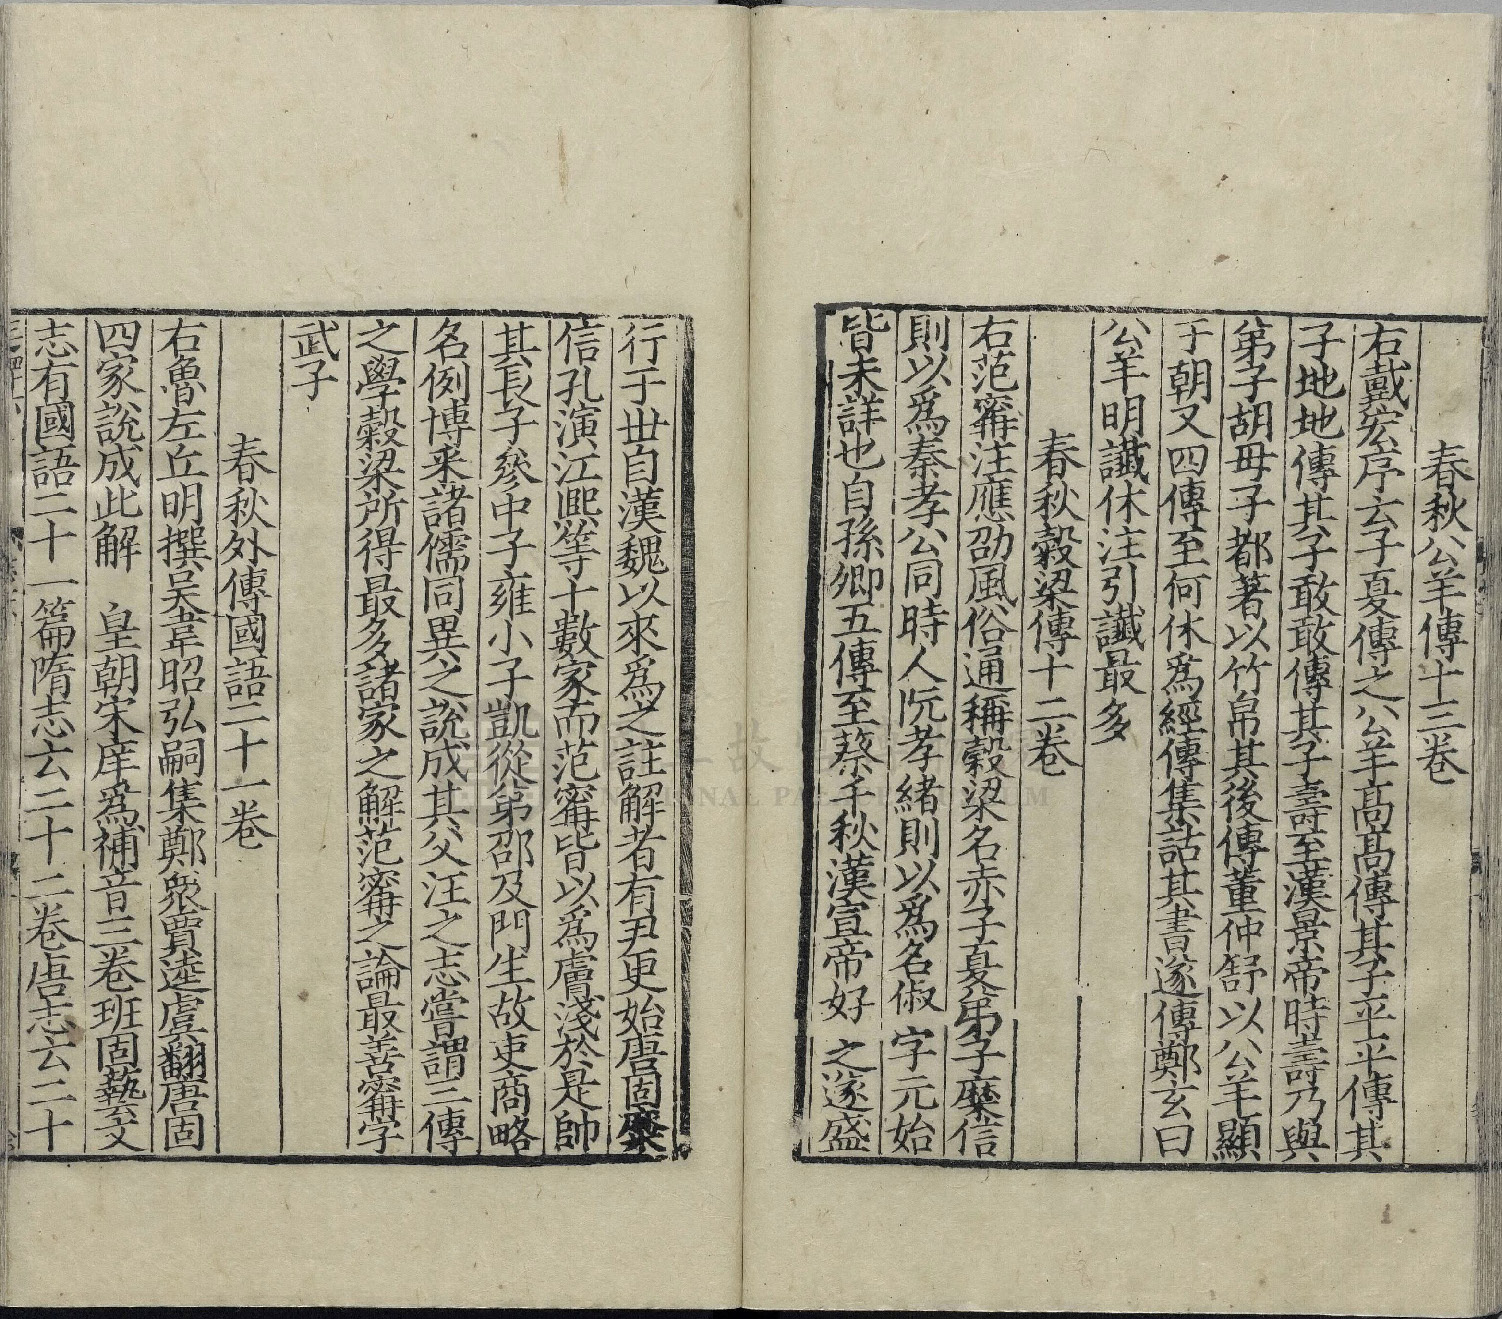 春秋公羊傳十三卷
右戴宏序云子夏傳之公羊高高傳其子平平傳其
子地地傳其子敢敢傳其子壽至漢景帝時壽乃與
弟子胡毋子都著以竹帛其後傳董仲舒以公羊顯
于朝又四傳至何休爲經傳集詁其書遂傳鄭玄曰
公羊明讖休注引讖最多
春秋穀梁傳十二卷
右范甯注應劭風俗通稱穀梁名赤子夏弟子糜信
則以爲秦孝公同時人阮孝緒則以爲名俶字元始
皆未詳也自孫卿五傳至蔡千秋漢宣帝好之遂盛
行于世自漢魏以來爲之註解者有尹更始唐固糜
信孔演江熙等十數家而范甯皆以爲膚淺於是帥
其長子參中子雍小子凱從弟邵及門生故吏商略
名例博采諸儒同異之說成其父汪之志嘗謂三傳
之學穀梁所得最多諸家之解范甯之論最善甯字
武子
春秋外傳國語二十一卷
右魯左丘明撰吳韋昭弘嗣集鄭衆賈逵虞翻唐固
四家說成此解　皇朝宋庠爲補音三卷班固藝文
志有國語二十一篇隋志云二十二卷唐志云二十
NATIONAL PALACE MUSEUM